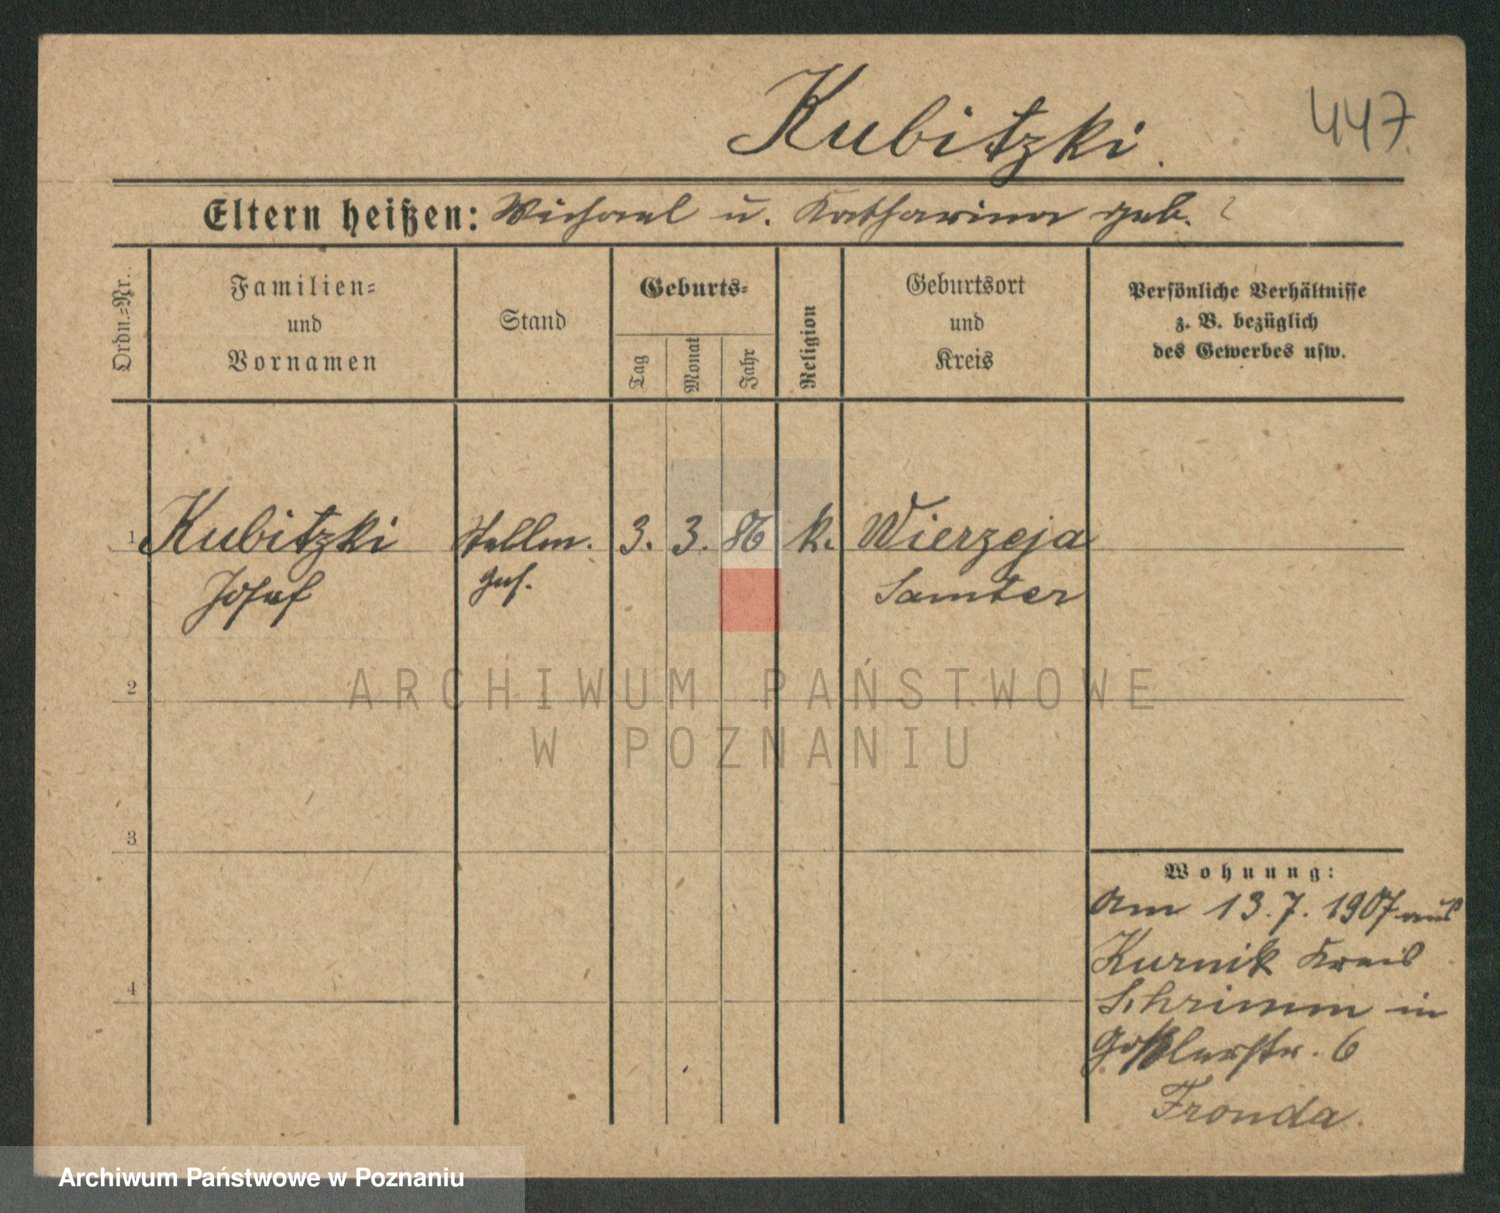 Kubitzki.
447
Eltern heißen: Michael u. Katharina geb. ?
Ordn.-Nr.
Familien-
und
Vornamen
Stand
Geburts-
Tag
Monat
Jahr
Religion
Geburtsort
und
Kreis
Persönliche Verhältnisse
z. B. bezüglich
des Gewerbes usw.
1 Kubitzki Stellm. 3. 3. 86 k. Wierzeja
Josef ges. Samter
ARCHIWUM PAŃSTWOWE
2
W POZNANIU
3
Wohnung:
Am 13.7.1907 aus
Kurnik Kreis
4
Schrimm in
Goßlerstr. 6
Fronda.
Archiwum Państwowe w Poznaniu